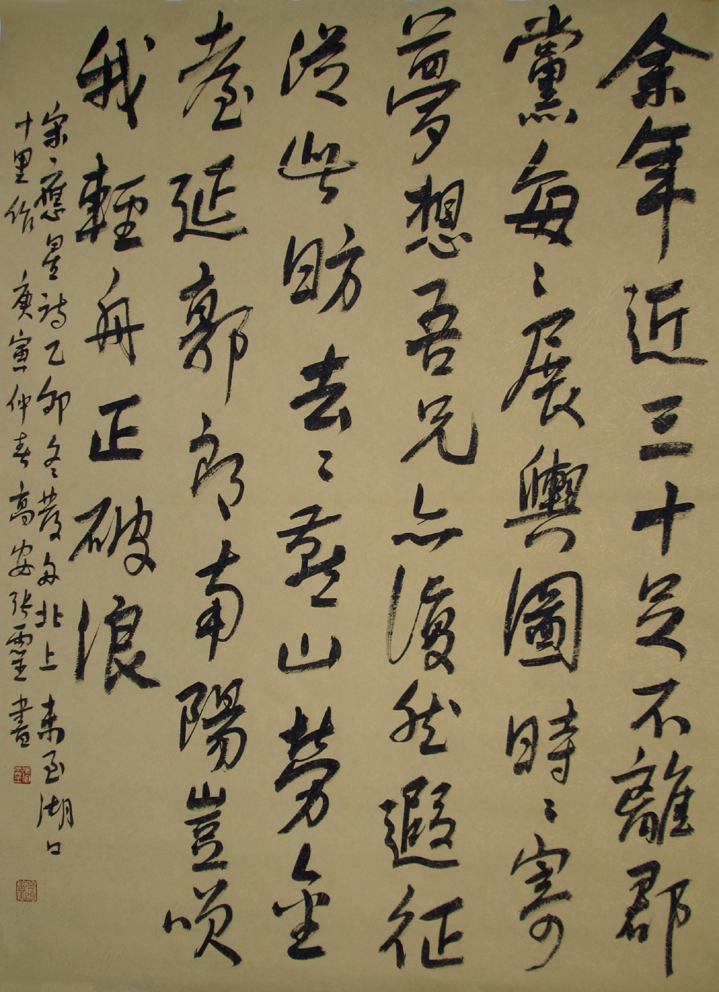 余年近三十足不離郡
黨每々展輿圖時々寄
夢想吾兄亦復然遐征
從此昉去々燕山勞金
臺延郭郎南陽豈咲
我輕舟正破浪
宋應星詩乙卯冬發舟北上 未至湖口
十里作 庚寅仲春高安張書